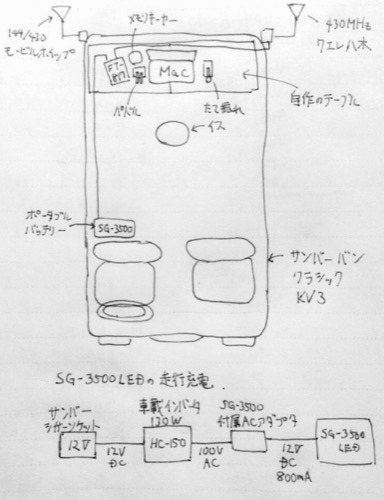 144/430
モービルホイップ
メモリキーヤー
430MHz
クエレ八木
FT-
817
Mac
パドル
たて振れ
自作のテーブル
イス
ポータブル
バッテリー
SG-3500
サンバーバン
クラシック
KV3
SG-3500LEDの走行充電.
サンバー
シガーソケット
12V
12V
DC
車載インバータ
130W
HC-150
100V
AC
SG-3500
付属ACアダプタ
12V
DC
800mA
SG-3500
LED